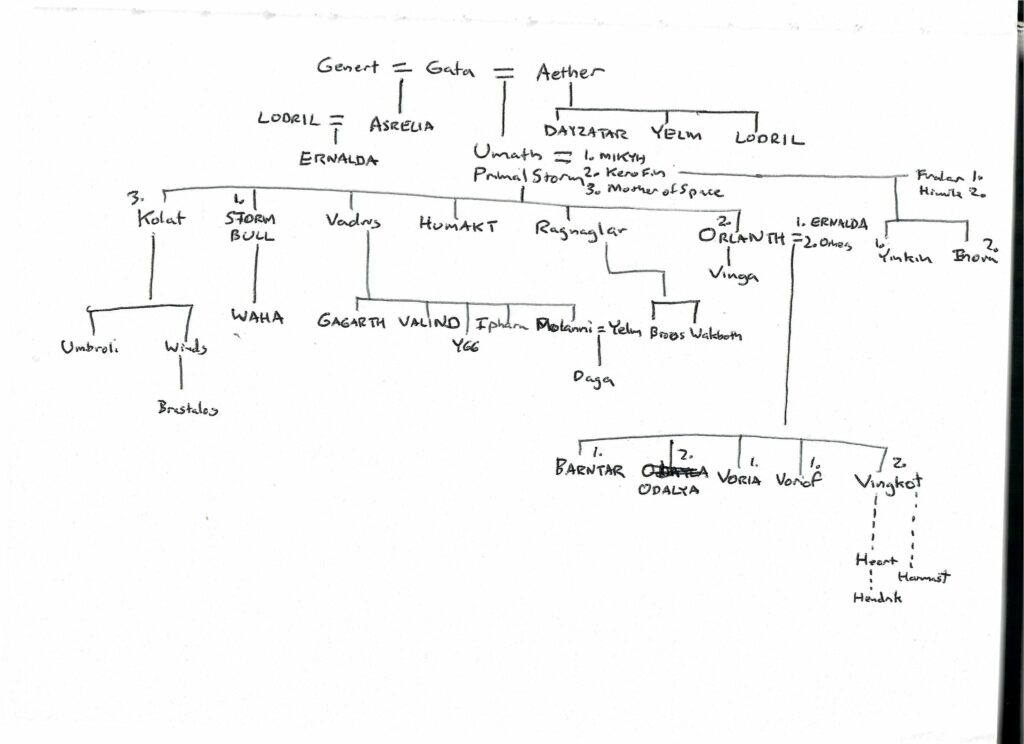 Genert = Gata = Aether
LODRIL = ASRELIA
DAYZATAR YELM LODRIL
ERNALDA
Umath = 1. MIKYH
Primal Storm 2. Kero Fin
3. Mother of Space
Fralar 1.
Himile 2.
3. Kolat
1. STORM BULL
Vadrus
HUMAKT
Ragnaglar
2. ORLANTH = 1. ERNALDA
2. Others
1. Yinkin
2. Inora
Vinga
WAHA
GAGARTH VALIND YGG Iphara Molanni = Yelm
Broos Wakboth
Umbroli Winds
Daga
Brastalos
1. BARNTAR
2. ODALYA
1. VORIA
1. Voriof
2. Vingkot
Heort
Harmast
Hendrik